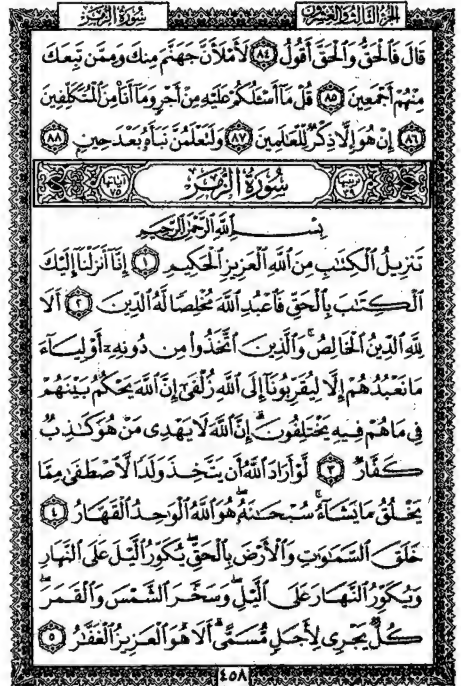 الجزء الثالث والعشرون سورة الزمر
قَالَ فَٱلْحَقُّ وَٱلْحَقَّ أَقُولُ ٨٤ لَأَمْلَأَنَّ جَهَنَّمَ مِنكَ وَمِمَّن تَبِعَكَ
مِنْهُمْ أَجْمَعِينَ ٨٥ قُلْ مَآ أَسْـَٔلُكُمْ عَلَيْهِ مِنْ أَجْرٍ وَمَآ أَنَا۠ مِنَ ٱلْمُتَكَلِّفِينَ
٨٦ إِنْ هُوَ إِلَّا ذِكْرٌ لِّلْعَٰلَمِينَ ٨٧ وَلَتَعْلَمُنَّ نَبَأَهُۥ بَعْدَ حِينٍۭ ٨٨
ترتيبها ٣٩ سُورَةُ الزُّمَرِ آياتها ٧٥
بِسْمِ ٱللَّهِ ٱلرَّحْمَٰنِ ٱلرَّحِيمِ
تَنزِيلُ ٱلْكِتَٰبِ مِنَ ٱللَّهِ ٱلْعَزِيزِ ٱلْحَكِيمِ ١ إِنَّآ أَنزَلْنَآ إِلَيْكَ
ٱلْكِتَٰبَ بِٱلْحَقِّ فَٱعْبُدِ ٱللَّهَ مُخْلِصًا لَّهُ ٱلدِّينَ ٢ أَلَا
لِلَّهِ ٱلدِّينُ ٱلْخَالِصُ ۚ وَٱلَّذِينَ ٱتَّخَذُوا۟ مِن دُونِهِۦٓ أَوْلِيَآءَ
مَا نَعْبُدُهُمْ إِلَّا لِيُقَرِّبُونَآ إِلَى ٱللَّهِ زُلْفَىٰٓ إِنَّ ٱللَّهَ يَحْكُمُ بَيْنَهُمْ
فِى مَا هُمْ فِيهِ يَخْتَلِفُونَ ۗ إِنَّ ٱللَّهَ لَا يَهْدِى مَنْ هُوَ كَٰذِبٌ
كَفَّارٌ ٣ لَّوْ أَرَادَ ٱللَّهُ أَن يَتَّخِذَ وَلَدًا لَّٱصْطَفَىٰ مِمَّا
يَخْلُقُ مَا يَشَآءُ ۚ سُبْحَٰنَهُۥ ۖ هُوَ ٱللَّهُ ٱلْوَٰحِدُ ٱلْقَهَّارُ ٤
خَلَقَ ٱلسَّمَٰوَٰتِ وَٱلْأَرْضَ بِٱلْحَقِّ ۖ يُكَوِّرُ ٱلَّيْلَ عَلَى ٱلنَّهَارِ
وَيُكَوِّرُ ٱلنَّهَارَ عَلَى ٱلَّيْلِ ۖ وَسَخَّرَ ٱلشَّمْسَ وَٱلْقَمَرَ ۖ
كُلٌّ يَجْرِى لِأَجَلٍ مُّسَمًّى ۗ أَلَا هُوَ ٱلْعَزِيزُ ٱلْغَفَّٰرُ ٥
٤٥٨